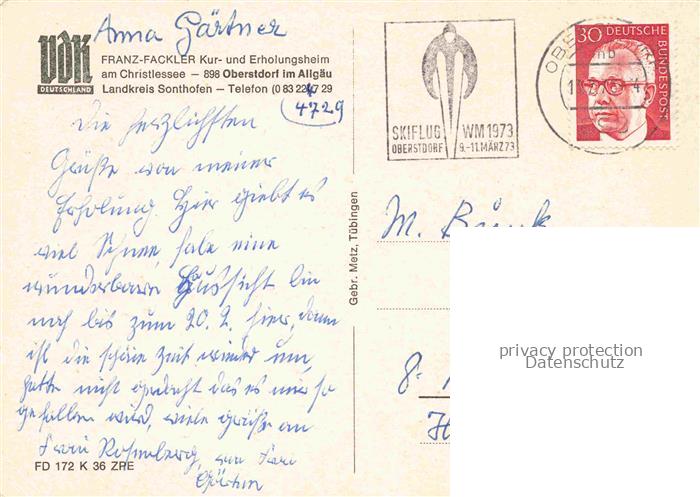 Anna Gärtner
VdK
DEUTSCHLAND
FRANZ-FACKLER Kur- und Erholungsheim
am Christlessee — 898 Oberstdorf im Allgäu
Landkreis Sonthofen — Telefon (0 83 22) 47 29
4729
Die herzlichsten
Grüße von meiner
Erholung. Hier giebt es
viel Schnee, habe eine
wunderbare Aussicht bin
noch bis zum 20. 2. hier, dann
ist die schöne Zeit wieder um,
hätte nicht gedacht das es mir so
gefallen wird, viele grüße an
Frau Rosenberg, von Frau
Gärtner
FD 172 K 36 ZPE
Gebr. Metz, Tübingen
SKIFLUG WM 1973
OBERSTDORF 9.-11. MÄRZ 73
30
DEUTSCHE
BUNDESPOST
M. Bünk
8-
privacy protection
Datenschutz